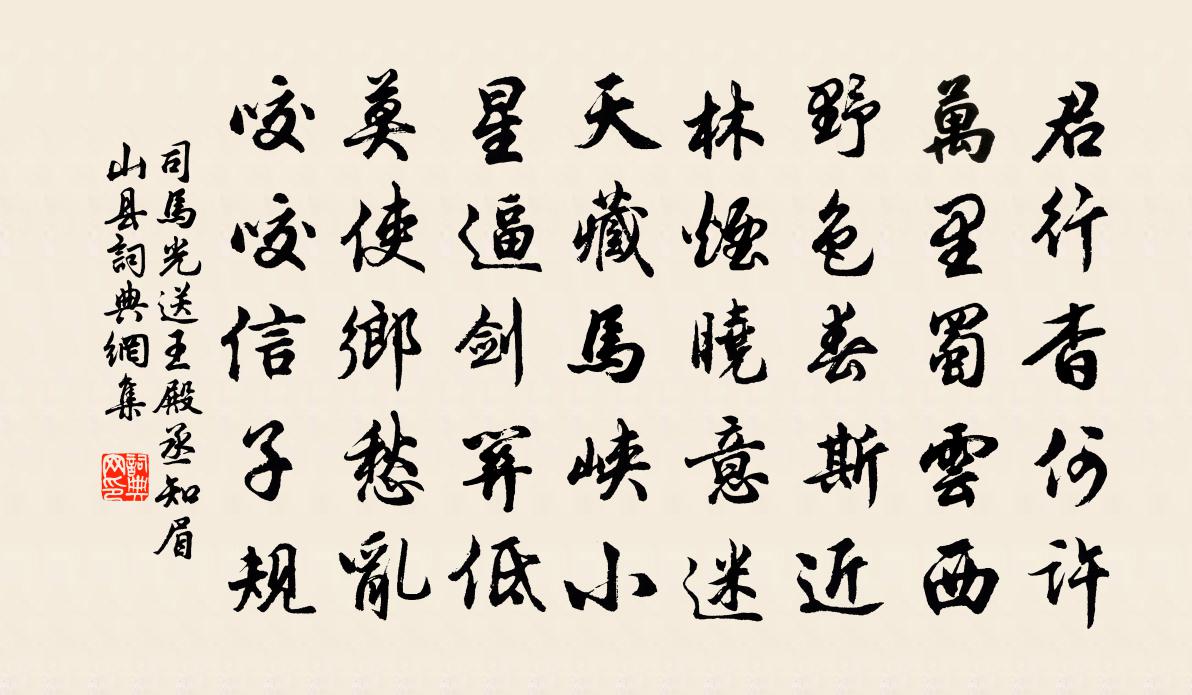 君行杳何許
萬里蜀雲西
野色春斯近
林煙曉意迷
天藏馬峽小
星逼劍關低
莫使鄉愁亂
咬咬信子規
司馬光送王殿丞知眉
山县詞典網集
詞典網印